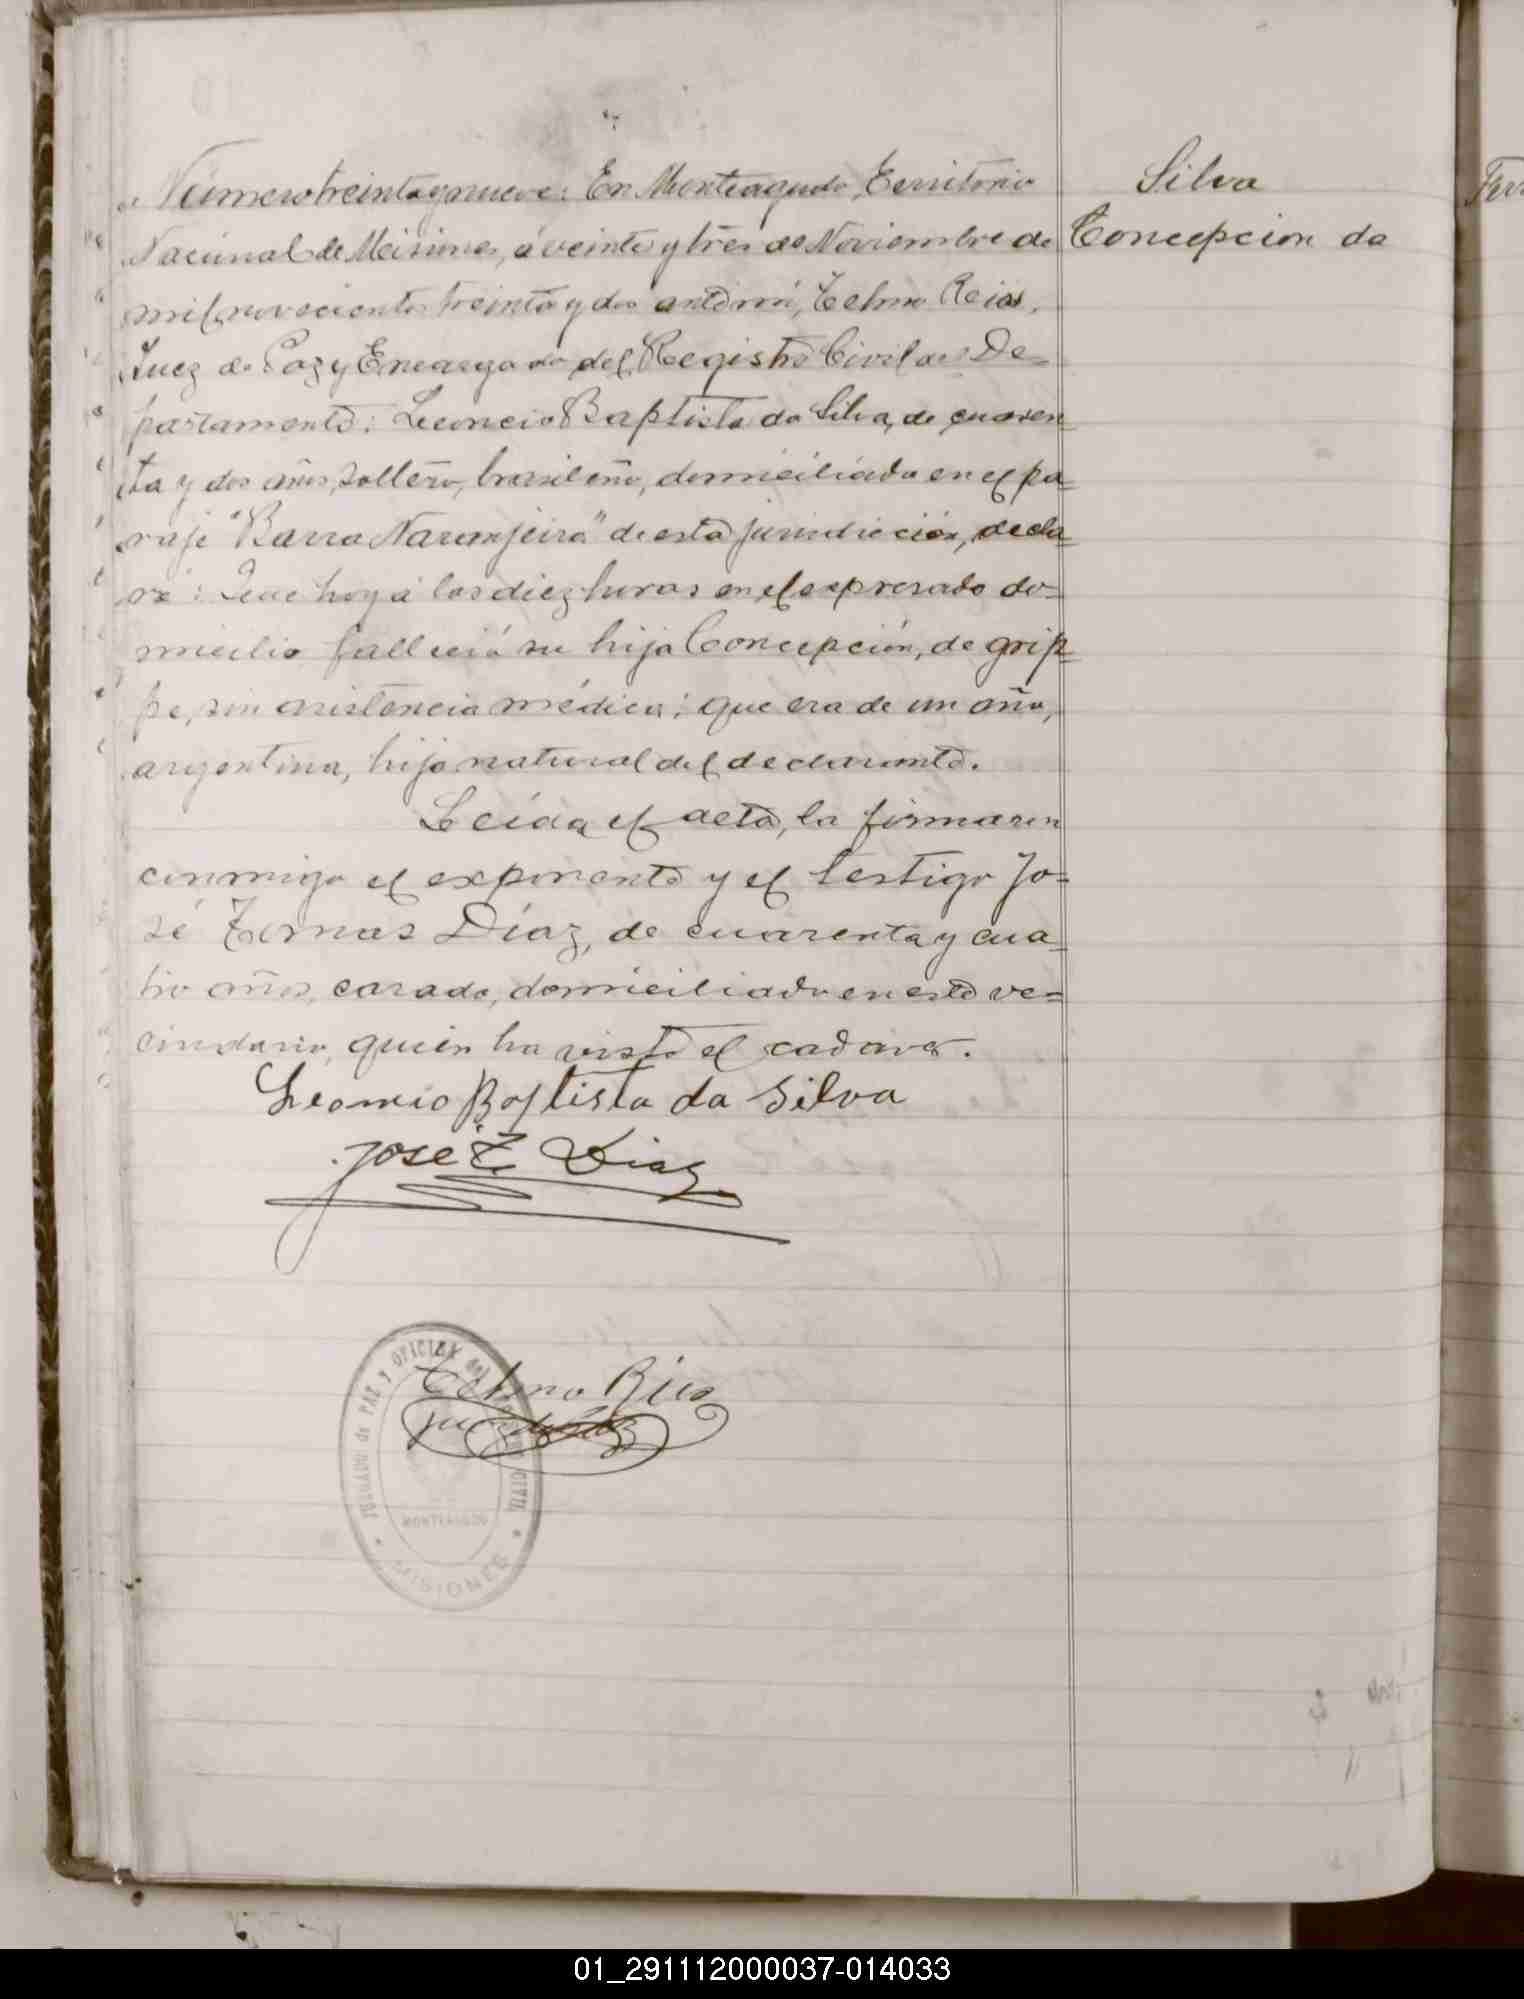 Número treinta y nueve: En Monteagudo, Territorio
Nacional de Misiones, á veinte y tres de Noviembre de
mil novecientos treinta y dos ante mí, Telmo Reias,
Juez de Paz y Encargado del Registro Civil del De=
partamento: Leoncio Baptista da Silva, de cuaren_
ta y dos años, soltero, brasileño, domiciliado en el pa_
raje "Barra Naranjeira" de esta jurisdicción, decla_
ró: Que hoy á las diez horas en el expresado do=
micilio falleció su hija Concepción, de grip_
pe, sin asistencia médica; que era de un año,
argentina, hija natural del declarante.
Leída el acta, la firmaron
conmigo el exponente y el testigo Jo=
sé Tomas Díaz, de cuarenta y cua_
tro años, casado, domiciliado en este ve=
cindario, quien ha visto el cadaver.
Leoncio Baptista da Silva
José T. Diaz
Telmo Rius
JUZGADO de PAZ y OFICINA del REGISTRO CIVIL
MONTEAGUDO
MISIONES
Silva
Concepcion da
01_291112000037-014033